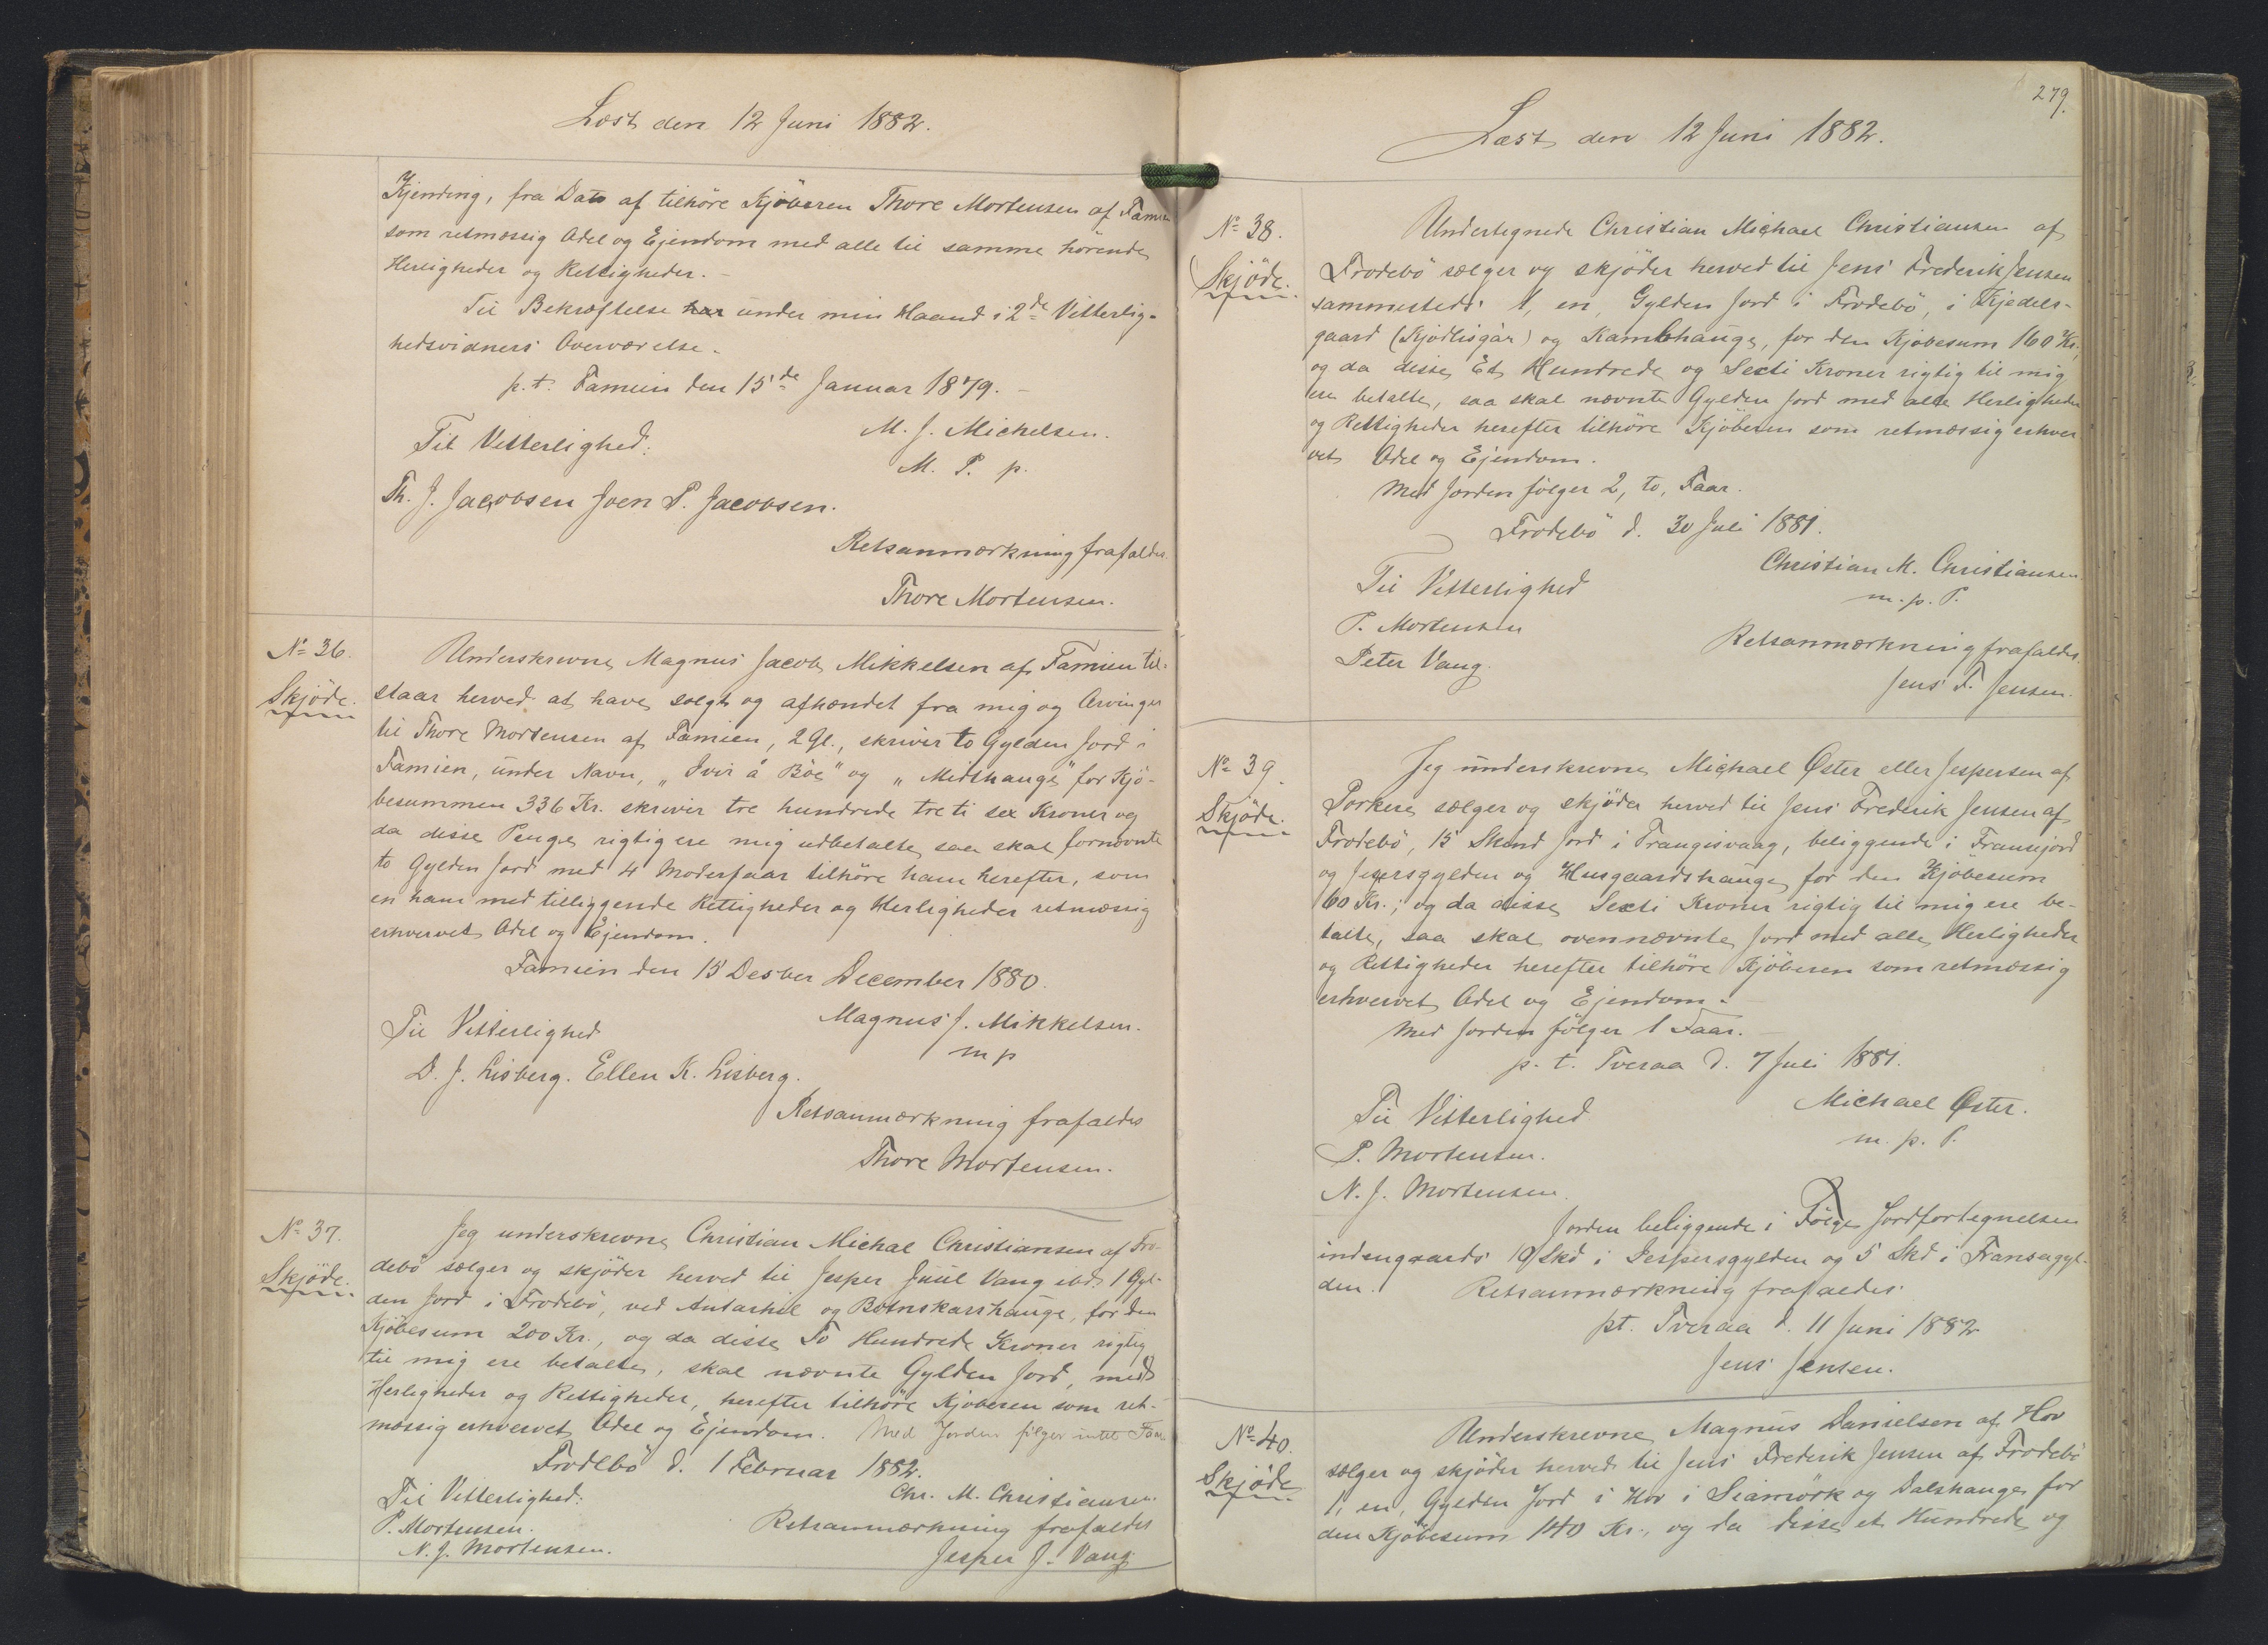 Læst den 12 Juni 1882.
Kjending, fra Dato af tilhöre Kjöberen Thore Mortensen af Famien
som retmæssig Odel og Ejendom med alle til samme hörende
Herligheder og Rettigheder. -
Til Bekræftelse har under min Haand i 2de Vitterlig-
hedsvidners Overværelse.
p.t. Famien den 15de Januar 1879. -
M. J. Michelsen.
Til Vitterlighed:
M. P. p.
Th. J. Jacobsen Joen P. Jacobsen.
Retsanmærkning frafaldes.
Thore Mortensen.
No 36.
Skjöde.
Underskrevne Magnus Jacob Mikkelsen af Famien til-
staar herved at have solgt og afhændet fra mig og Arvinger
til Thore Mortensen af Famien, 2 Gl., skriver to Gylden Jord i
Famien, under Navn, "Ivir á Böe" og "Medshauge" for Kjö-
besummen 336 Kr. skriver tre hundrede treti sex Kroner og
da disse Penge rigtig ere mig udbetalte, saa skal fornævnte
to Gylden Jord med 4 Moderfaar tilhöre ham herefter, som
en ham med tilliggende Rettigheder og Herligheder retmæssig
erhvervet Odel og Ejendom.
Famien den 15 Desber December 1880.
Magnus J. Mikkelsen.
Til Vitterlighed
m p
D. J. Lisberg. Ellen K. Lisberg.
Retsanmærkning frafaldes
Thore Mortensen.
No 37.
Skjöde.
Jeg underskrevne Christian Michal Christiansen af Fro-
debö sælger og skjöder herved til Jesper Juul Vang ibd. 1 Gyl-
den Jord i Frodebö, ved Autarhil og Botnskarshauge, for den
Kjöbesum 200 Kr., og da disse To Hundrede Kroner rigtig
til mig ere betalte, skal nævnte Gylden Jord, med
Herligheder og Rettigheder, herefter tilhöre Kjöberen som ret-
mæssig erhvervet Odel og Ejendom. Med Jorden fölger intet Faar
Frodebö d. 1 Februar 1882.
Til Vitterlighed:
Chr. M. Christiansen.
P. Mortensen.
Retsanmærkning frafaldes
N. J. Mortensen.
Jesper J. Vang
279.
Læst den 12 Juni 1882.
No 38.
Skjöde.
Undertegnede Christian Michael Christiansen af
Frodebö sælger og skjöder herved til Jens Frederik Jensen
sammesteds 1, en, Gylden Jord i Frodebö, i Kjedels-
gaard (Kjödlisgár) og Kambhauge, for den Kjöbesum 160 Kr.
og da disse Et Hundrede og Sexti Kroner rigtig til mig
ere betalte, saa skal nævnte Gylden Jord med alle Herligheder
og Rettigheder herefter tilhöre Kjöberen som retmæssig erhver
vet Odel og Ejendom.
Med Jorden fölger 2, to, Faar.
Frodebö d. 30 Juli 1881.
Christian M. Christiansen
Til Vitterlighed
m. p. P.
P. Mortensen
Retsanmærkning frafaldes.
Peter Vang.
Jens F. Jensen.
No 39.
Skjöde.
Jeg underskrevne Michael Øster eller Jespersen af
Porkere sælger og skjöder herved til Jens Frederik Jensen af
Frodebö, 15 Skind Jord i Trangisvaag, beliggende i Fransejord
og Jespersgylden og Husgaardshauge for den Kjöbesum
60 Kr.; og da disse Sexti Kroner rigtig til mig ere be-
talte, saa skal ovennævnte Jord med alle Herligheder
og Rettigheder herefter tilhöre Kjöberen som retmæssig
erhvervet Odel og Ejendom. -
Med Jorden fölger 1 Faar. -
p. t. Tveraa d. 7 Juli 1881.
Michael Øster.
Til Vitterlighed
m. p. P.
P. Mortensen.
N. J. Mortensen.
Jorden beliggende i Fölge Jordfortegnelsen
indengaards 10 Skd i Jespersgylden og 5 Skd i Fransagyl-
den. Retsanmærkning frafaldes.
pt. Tveraa d. 11 Juni 1882
Jens Jensen.
No 40.
Skjöde
Underskrevne Magnus Danielsen af Hov
sælger og skjöder herved til Jens Frederik Jensen af Frodebö
1, en, Gylden Jord i Hov i Siamörk og Dalshauge for
den Kjöbesum 140 Kr., og da disse et Hundrede og